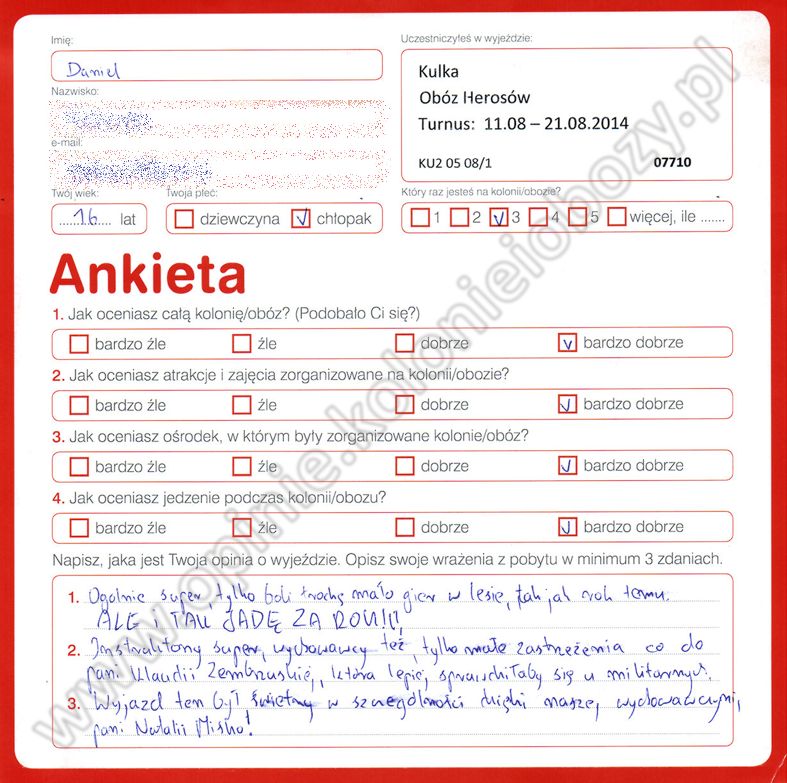 Imię:
Daniel
Nazwisko:
e-mail:
Twój wiek:
16 lat
Twoja płeć:
dziewczyna chłopak
Uczestniczyłeś w wyjeździe:
Kulka
Obóz Herosów
Turnus: 11.08 – 21.08.2014
KU2 05 08/1 07710
Który raz jesteś na kolonii/obozie?
1 2 3 4 5 więcej, ile .......
Ankieta
1. Jak oceniasz całą kolonię/obóz? (Podobało Ci się?)
bardzo źle źle dobrze bardzo dobrze
2. Jak oceniasz atrakcje i zajęcia zorganizowane na kolonii/obozie?
bardzo źle źle dobrze bardzo dobrze
3. Jak oceniasz ośrodek, w którym były zorganizowane kolonie/obóz?
bardzo źle źle dobrze bardzo dobrze
4. Jak oceniasz jedzenie podczas kolonii/obozu?
bardzo źle źle dobrze bardzo dobrze
Napisz, jaka jest Twoja opinia o wyjeździe. Opisz swoje wrażenia z pobytu w minimum 3 zdaniach.
1. Ogólnie super, tylko boli trochę mało gier w lesie, tak jak rok temu.
ALE i TAK JADĘ ZA ROK!!!
2. Instruktorzy super, wychowawcy też, tylko małe zastrzeżenia co do
pani Klaudii, która lepiej sprawdziłaby się u militarnych.
3. Wyjazd ten był świetny w szczególności dzięki naszej wychowawczyni,
pani Natalii Misko!
www.opinie.kolonieiobozy.pl